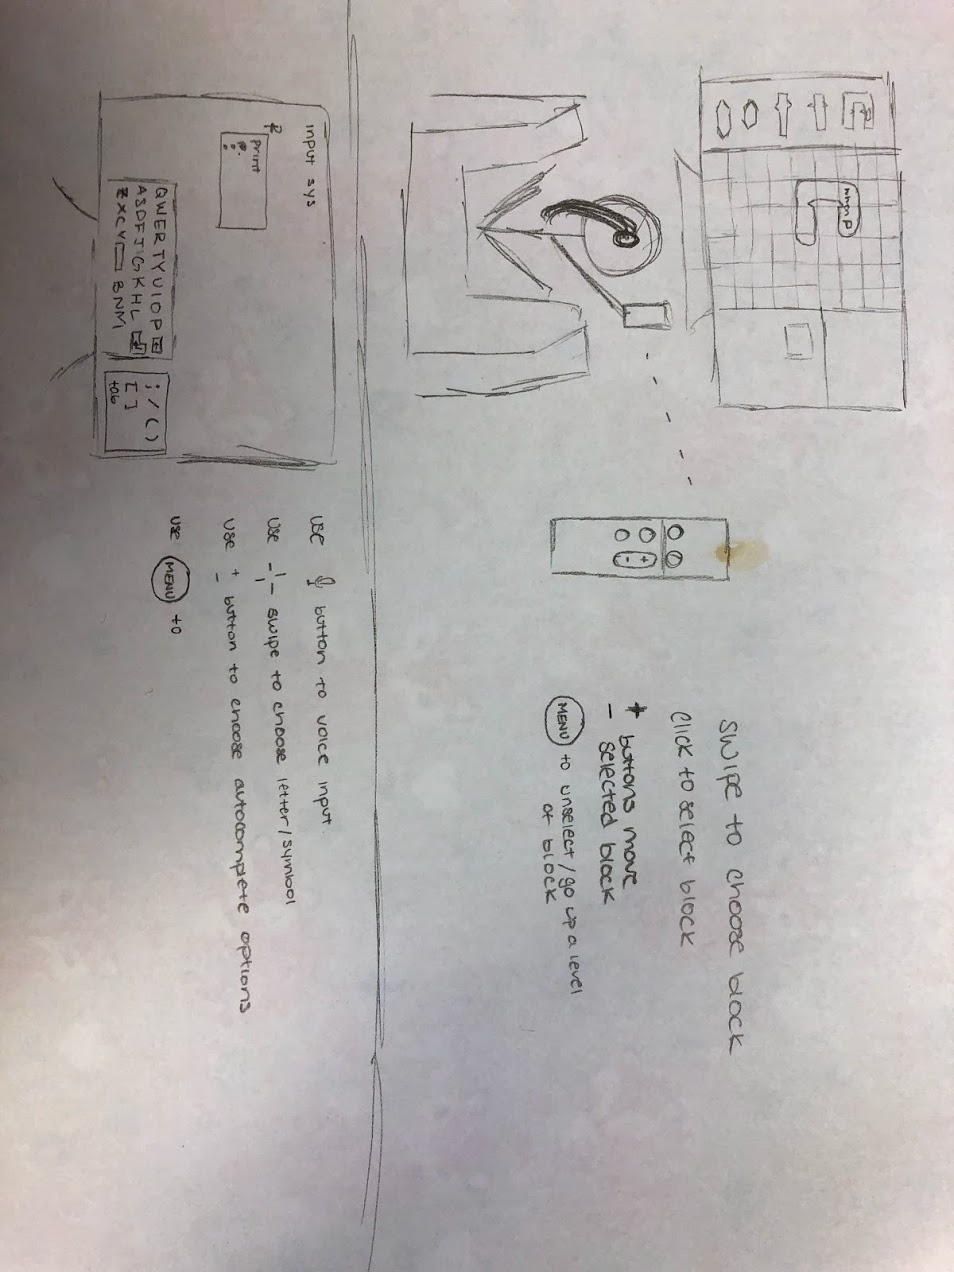 +
-
swipe to choose block
click to select block
+ buttons move
- selected block
MENU to unselect / go up a level
of block
input sys
print
QWERTYUIOP
ASDFJGKHL
ZXCV BNM
; / ( )
[ ]
tab
use button to voice input.
use swipe to choose letter/symbol
use + - button to choose autocomplete options
use MENU to